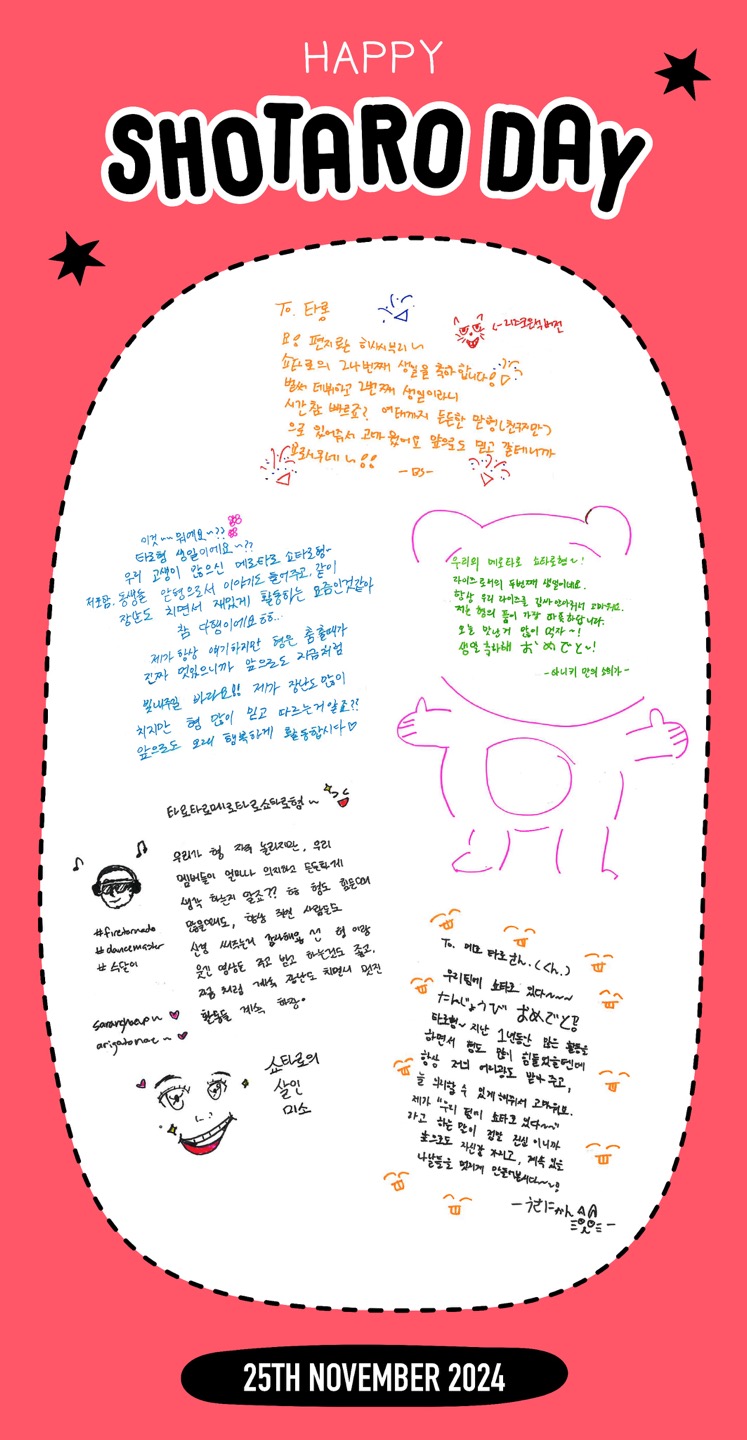 HAPPY
SHOTARO DAY
To. 타롱
요용 편지로는 히사시부리~
쇼타로의 24번째 생일을 축하합니다!
벌써 데뷔하고 2번째 생일이라니
시간 참 빠르죠? 여태까지 든든한 맏형(친구지만)
으로 있어줘서 고마웠어요 앞으로도 믿고 갈테니까
-ES-
이것~~ 뭐예요~??
타로형 생일이에요~??
우리 고생이 많으신 메로타로 쇼타로형~
저포함, 동생들 맏형으로서 이야기도 들어주고, 같이
장난도 치면서 재밌게 활동하는 요즘인것같아
참 다행이에요 ㅎㅎ..
제가 항상 얘기하지만 형은 춤출때가
진짜 멋있으니까 앞으로도 지금처럼
빛내주길 바라요!! 제가 장난도 많이
치지만 형 많이 믿고 따르는거 알죠??
앞으로도 오래 행복하게 활동합시다♡
우리의 메로타로 쇼타로형~!
라이즈로서의 두번째 생일이네요.
항상 우리 라이즈를 감싸 안아줘서 고마워요.
저는 형의 품이 가장 따뜻합니다.
오늘 맛난거 많이 먹자~!
생일 축하해 おめでと~!
-아니키 만의 소희가-
타로타로메로타로쇼타로형~
우리가 형 자주 놀리지만, 우리
멤버들이 얼마나 의지하고 든든하게
생각 하는지 알죠?? ㅎㅎ 형도 힘든데
많을텐데도, 항상 주변 사람들도
신경 써주는거 감사해요 형 이랑
웃긴 영상도 주고 받고 하는것도 좋고,
지금 처럼 계속 장난도 치면서 멋진
활동들 계속 하장.
#firetornado
#dancemaster
saranghaeyo~ ♥
arigatonae~ ♥
쇼타로의
살인
미소
To. 메로 타로さん. (くん.)
우리팀에 쇼타로 있다~~~
たんじょうび おめでと!!
타로형~ 지난 1년동안 많은 활동을
하면서 형도 많이 힘들었을텐데
항상 저의 어리광도 받아 주고,
늘 의지할 수 있게 해줘서 고마워요.
제가 "우리 팀에 쇼타로 있다~~"
라고 하는 말이 정말 진심 이니까
앞으로도 자신감 가지고, 계속 있을
나날들을 멋지게 만들어봅시다~~!
25TH NOVEMBER 2024